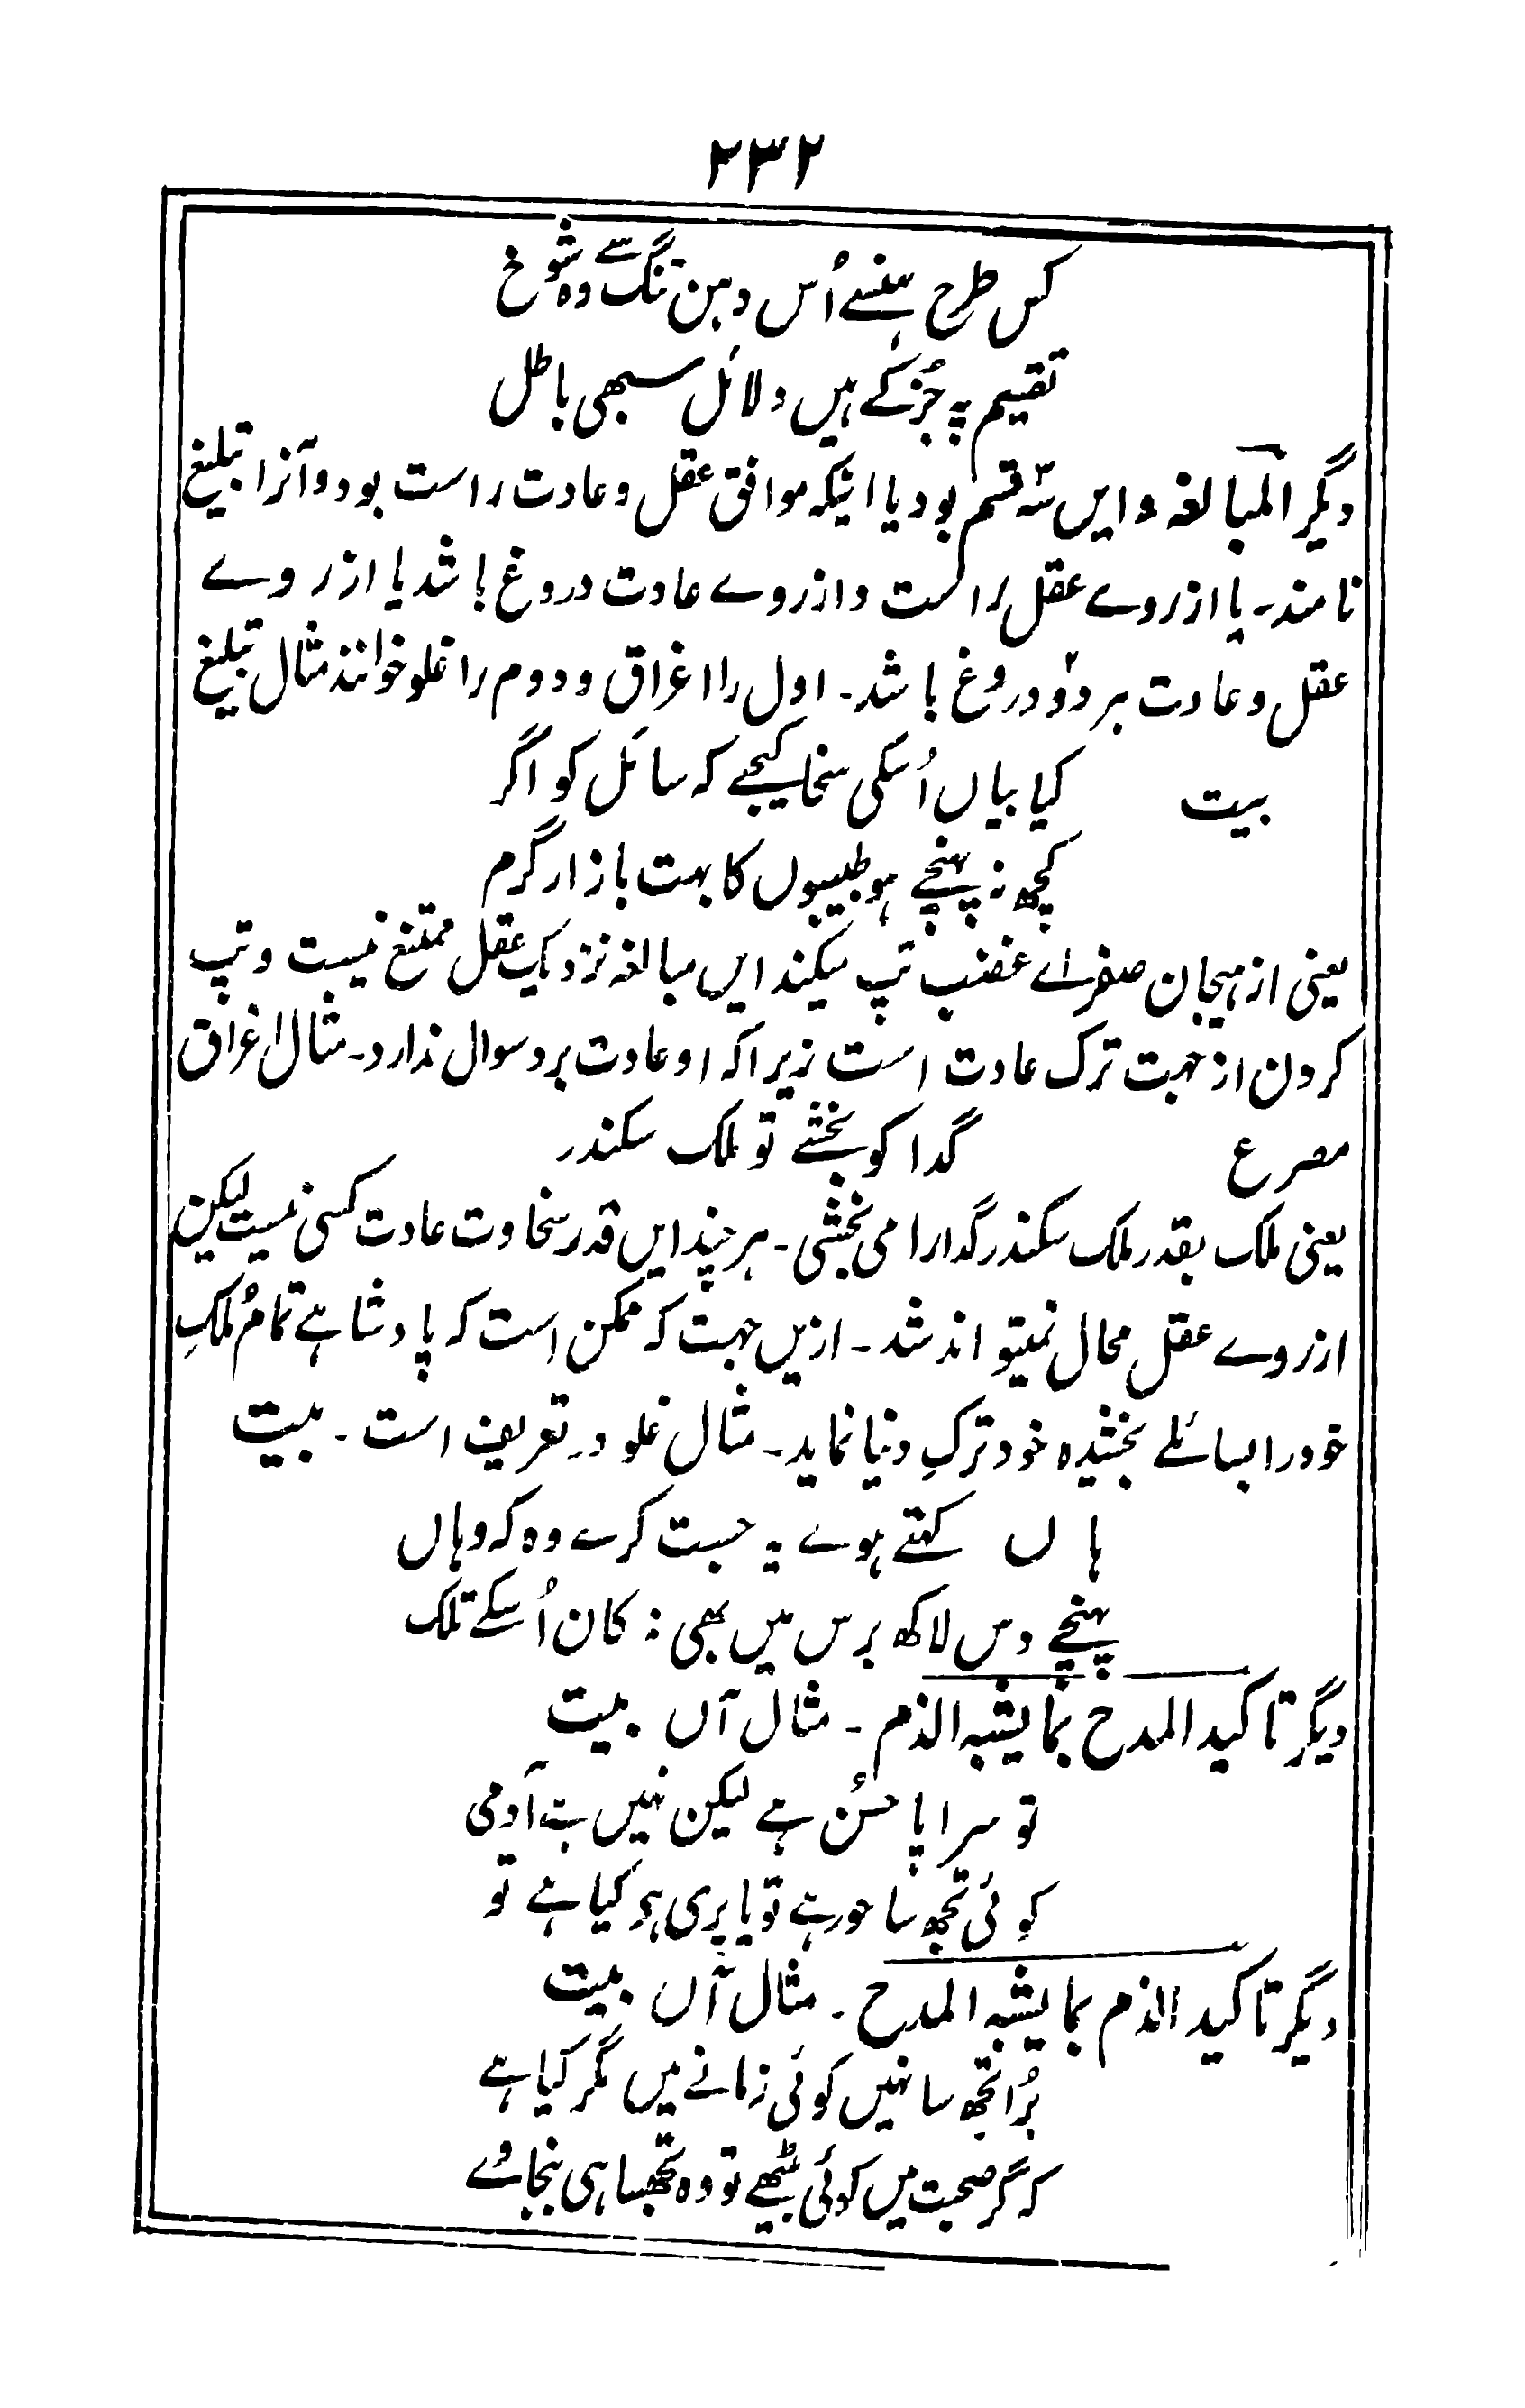 ۲۳۲
کس طرح ہنسے اُس دہن تنگ سے وہ شوخ
تقیم پہ جُز کے ہیں دلائل سبھی باطل
دیگر المبالغہ وایں سہ قسم بود یا اینکہ موافق عقل و عادت راست بود و آنرا تبلیغ
نامند۔ یا ازروے عقل راست و ازروے عادت دروغ باشد یا از روے
عقل و عادت ہر دو دروغ باشد۔ اول را اغراق و دوم را غلو خوانند مثال تبلیغ
بیت کیا بیاں اُسکی سخا کیجیے کہ سائل کو اگر
کچھ نہ پہنچے ہو طبیبوں کا بہت بازار گرم
یعنی از ہیجان صفراے غضب تپ میکند ایں مبالغہ نزدیک عقل ممتنع نیست و تپ
کردن از جہت ترک عادت است زیراکہ او عادت برد سوال ندارد۔ مثال اغراق
مصرع گدا کو بخشے تو ملک سکندر
یعنی ملک بقدر ملک سکندر گدارا می بخشی۔ ہر چند ایں قدر سخاوت عادت کسی نیست لیکن
ازروے عقل محال نمیتواند شد۔ ازیں جہت کہ ممکن است کہ پادشاہے تمام مُلکِ
خودرا بسائلے بخشیدہ خود ترکِ دنیا نماید۔ مثال غلو در تعریف است۔ بیت
ہاں کہتے ہوے یہ جست کرے وہ کہ وہاں
پہنچے دس لاکھ برس میں بھی نہ کان اُسکے تلک
دیگر تاکید المدح بما یشبہ الذم۔ مثال آں بیت
تو سراپا حسُن ہے لیکن نہیں ہے آدمی
کوئی تجھ سا حور ہے تو یا پری ہو کیا ہے تو
دیگر تاکید الذم بما یشبہ المدح۔ مثال آں بیت
بُرا تجھ سا نہیں کوئی زمانے میں مگر کیا ہے
کہ گر صحبت میں کوئی بیٹھے تو وہ تجھسا ہی بنجائے